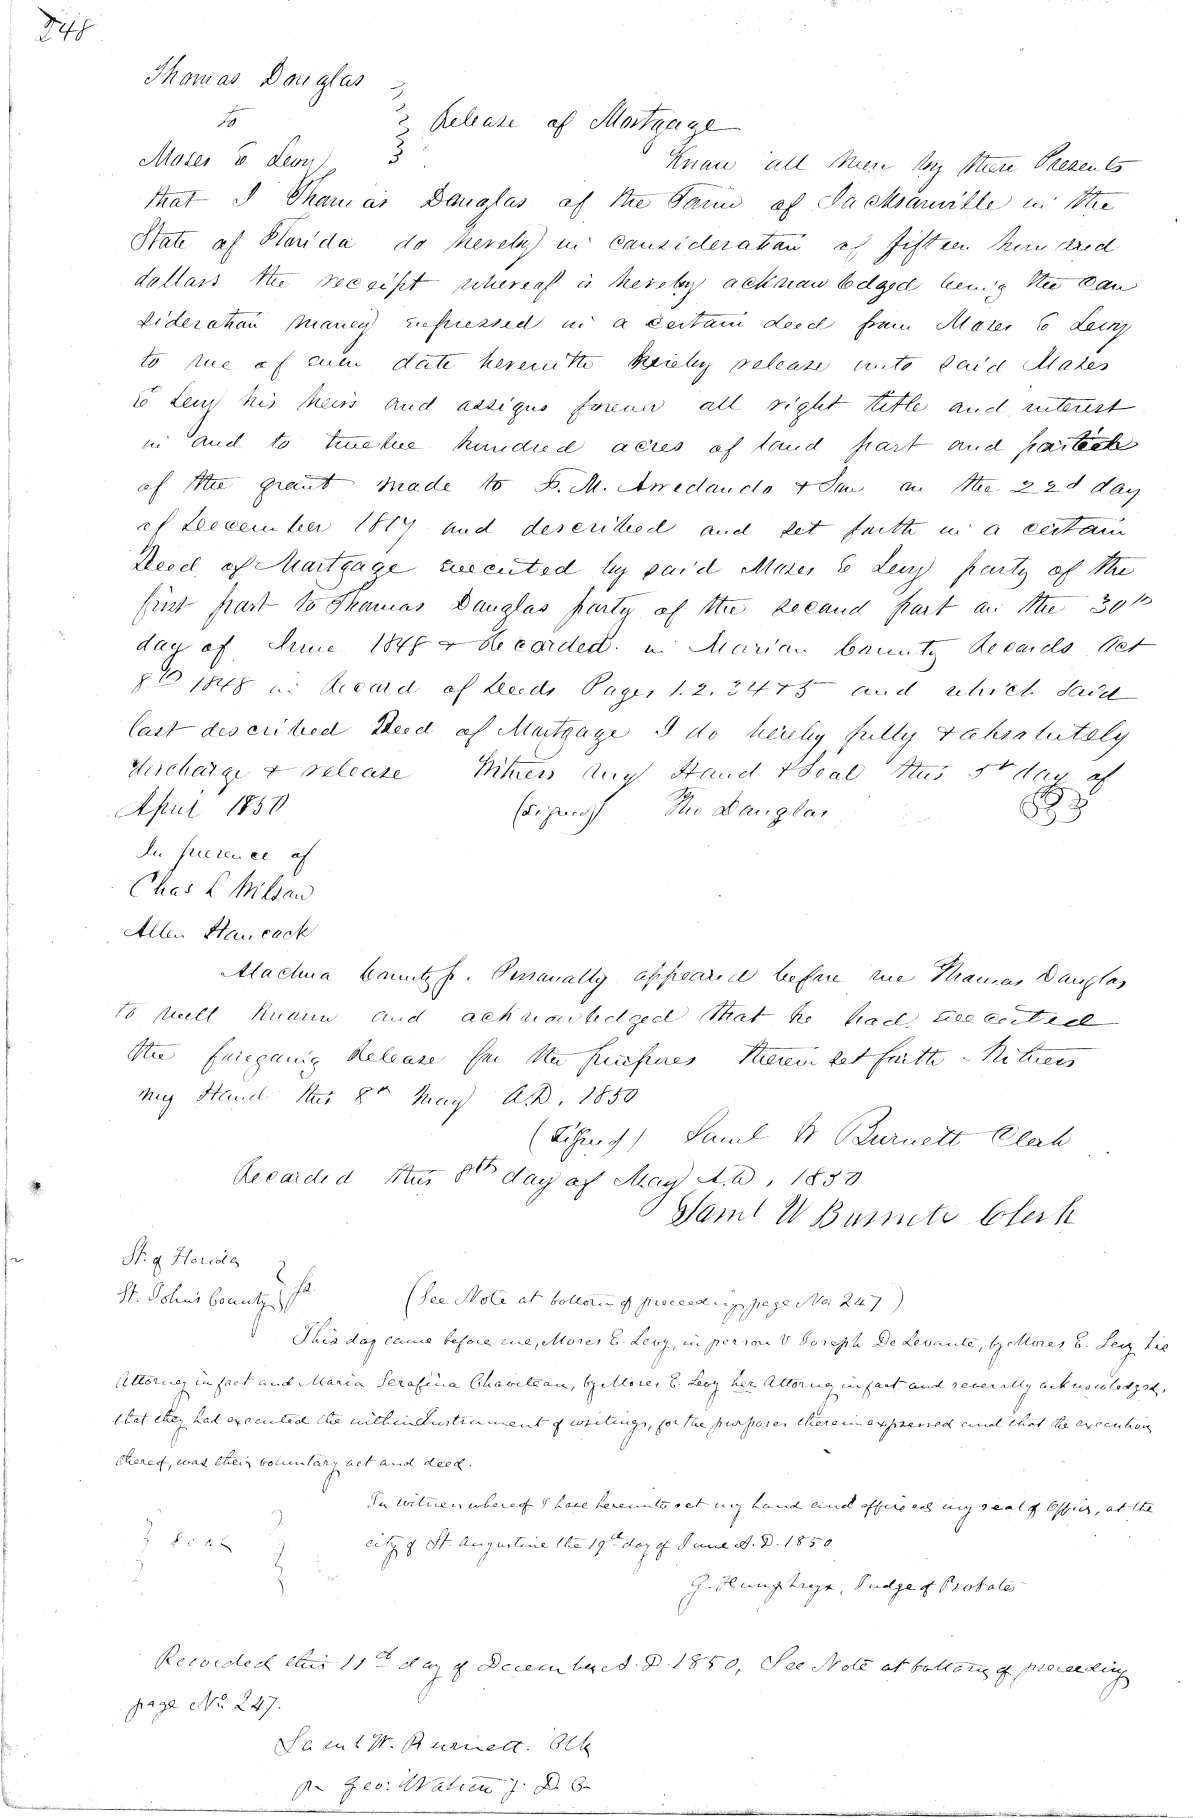 248
Thomas Douglas
to
Release of Mortgage
Moses E Levy
Know all men by these Presents
that I Thomas Douglas of the Town of Jacksonville in the
State of Florida do hereby in consideration of fifteen hundred
dollars the receipt whereof is hereby acknowledged being the con
sideration money expressed in a certain deed from Moses E Levy
to me of even date herewith hereby release unto said Moses
E Levy his heirs and assigns forever all right title and interest
in and to twelve hundred acres of land part and
of the grant made to F. M. Arredondo & Son on the 22d day
of December 1817 and described and set forth in a certain
Deed of Mortgage executed by said Moses E Levy party of the
first part to Thomas Douglas party of the second part on the 30th
day of June 1848 & Recorded in Marion County Records Oct
8th 1848 in Record of Deeds Pages 1.2.3 4 & 5 and which said
last described Deed of Mortgage I do hereby fully & absolutely
discharge & release Witness my Hand & Seal this 5th day of
April 1850 (Signed) Tho Douglas
In presence of
Chas L Wilson
Allen Hancock
Alachua County ss. Personally appeared before me Thomas Douglas
to well known and acknowledged that he had executed
the foregoing Release for the purposes therein set forth - Witness
my Hand this 8th May A.D. 1850
(Signed) Saml W Burnett Clerk
Recorded this 8th day of May A.D. 1850
Saml W Burnett Clerk
St. of Florida
St. John's County ss. (See Note at bottom of preceeding page No. 247)
This day came before me, Moses E. Levy, in person & Joseph De Levante, by Moses E. Levy his
Attorney in fact and Maria Serafina Chaviteau, by Moses E. Levy her Attorney in fact and severally acknowledged,
that they had executed the within Instrument of writings, for the purposes therein expressed and that the execution
thereof, was their voluntary act and deed.
In witness whereof I have hereunto set my hand and affixed my seal of Office, at the
Seal city of St. Augustine the 19th day of June A.D. 1850
G. Humphreys, Judge of Probates
Recorded this 11th day of December A.D. 1850, See Note at bottom of preceeding
page No. 247.
Saml W. Burnett. Clk
pr Geo: D C